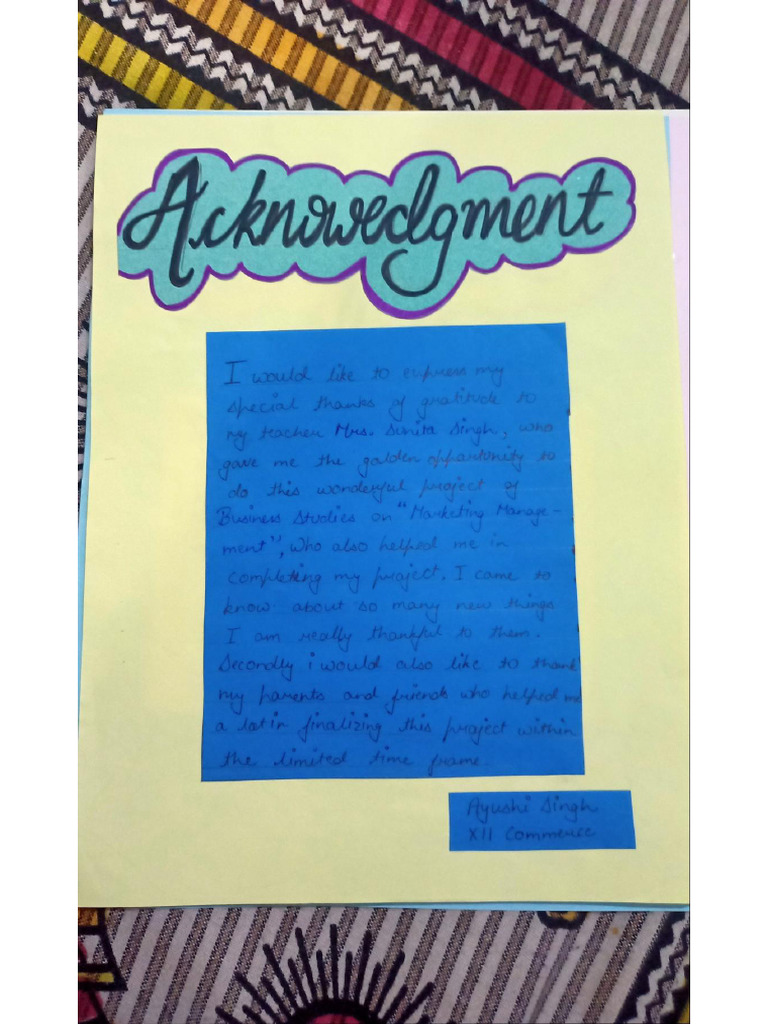 Acknowedgment
I would like to express my
special thanks of gratitude to
my teacher Mrs. Sunita Singh, who
gave me the golden opportunity to
do this wonderful project of
Business Studies on "Marketing Manage-
ment", who also helped me in
completing my project. I came to
know about so many new things
I am really thankful to them.
Secondly i would also like to thank
my parents and friends who helped me
a lot in finalizing this project within
the limited time frame.
Ayushi Singh
XII Commerce